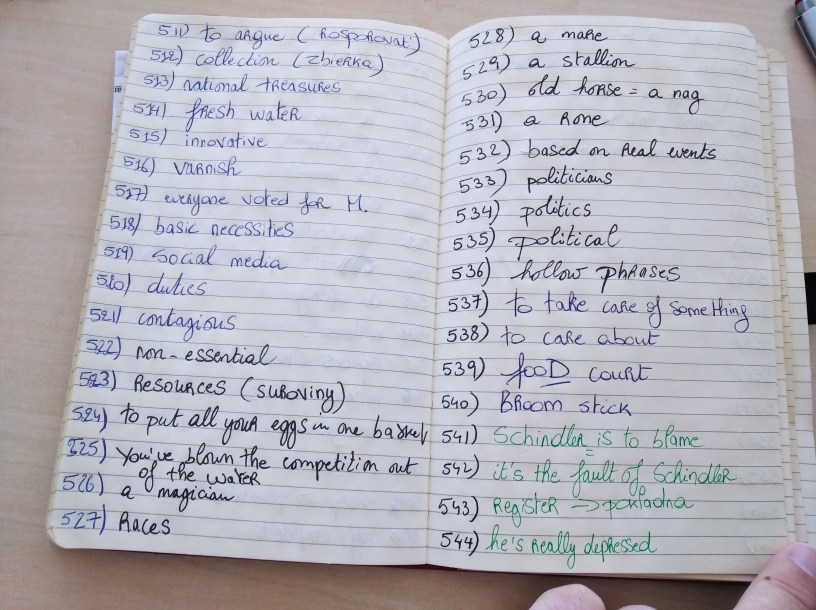 511) to argue (Rosporovat')
512) collection (zbierka)
513) national treasures
514) fresh water
515) innovative
516) varnish
517) everyone voted for M.
518) basic necessities
519) social media
520) duties
521) contagious
522) non-essential
523) Resources (suroviny)
524) to put all your eggs in one basket
525) you've blown the competition out
of the water
526) a magician
527) Races
528) a mare
529) a stallion
530) old horse = a nag
531) a Rone
532) based on Real events
533) politicians
534) politics
535) political
536) hollow phrases
537) to take care of something
538) to care about
539) fooD court
540) Broom stick
541) Schindler is to blame
542) it's the fault of Schindler
543) Register -> pokladna
544) he's Really depressed